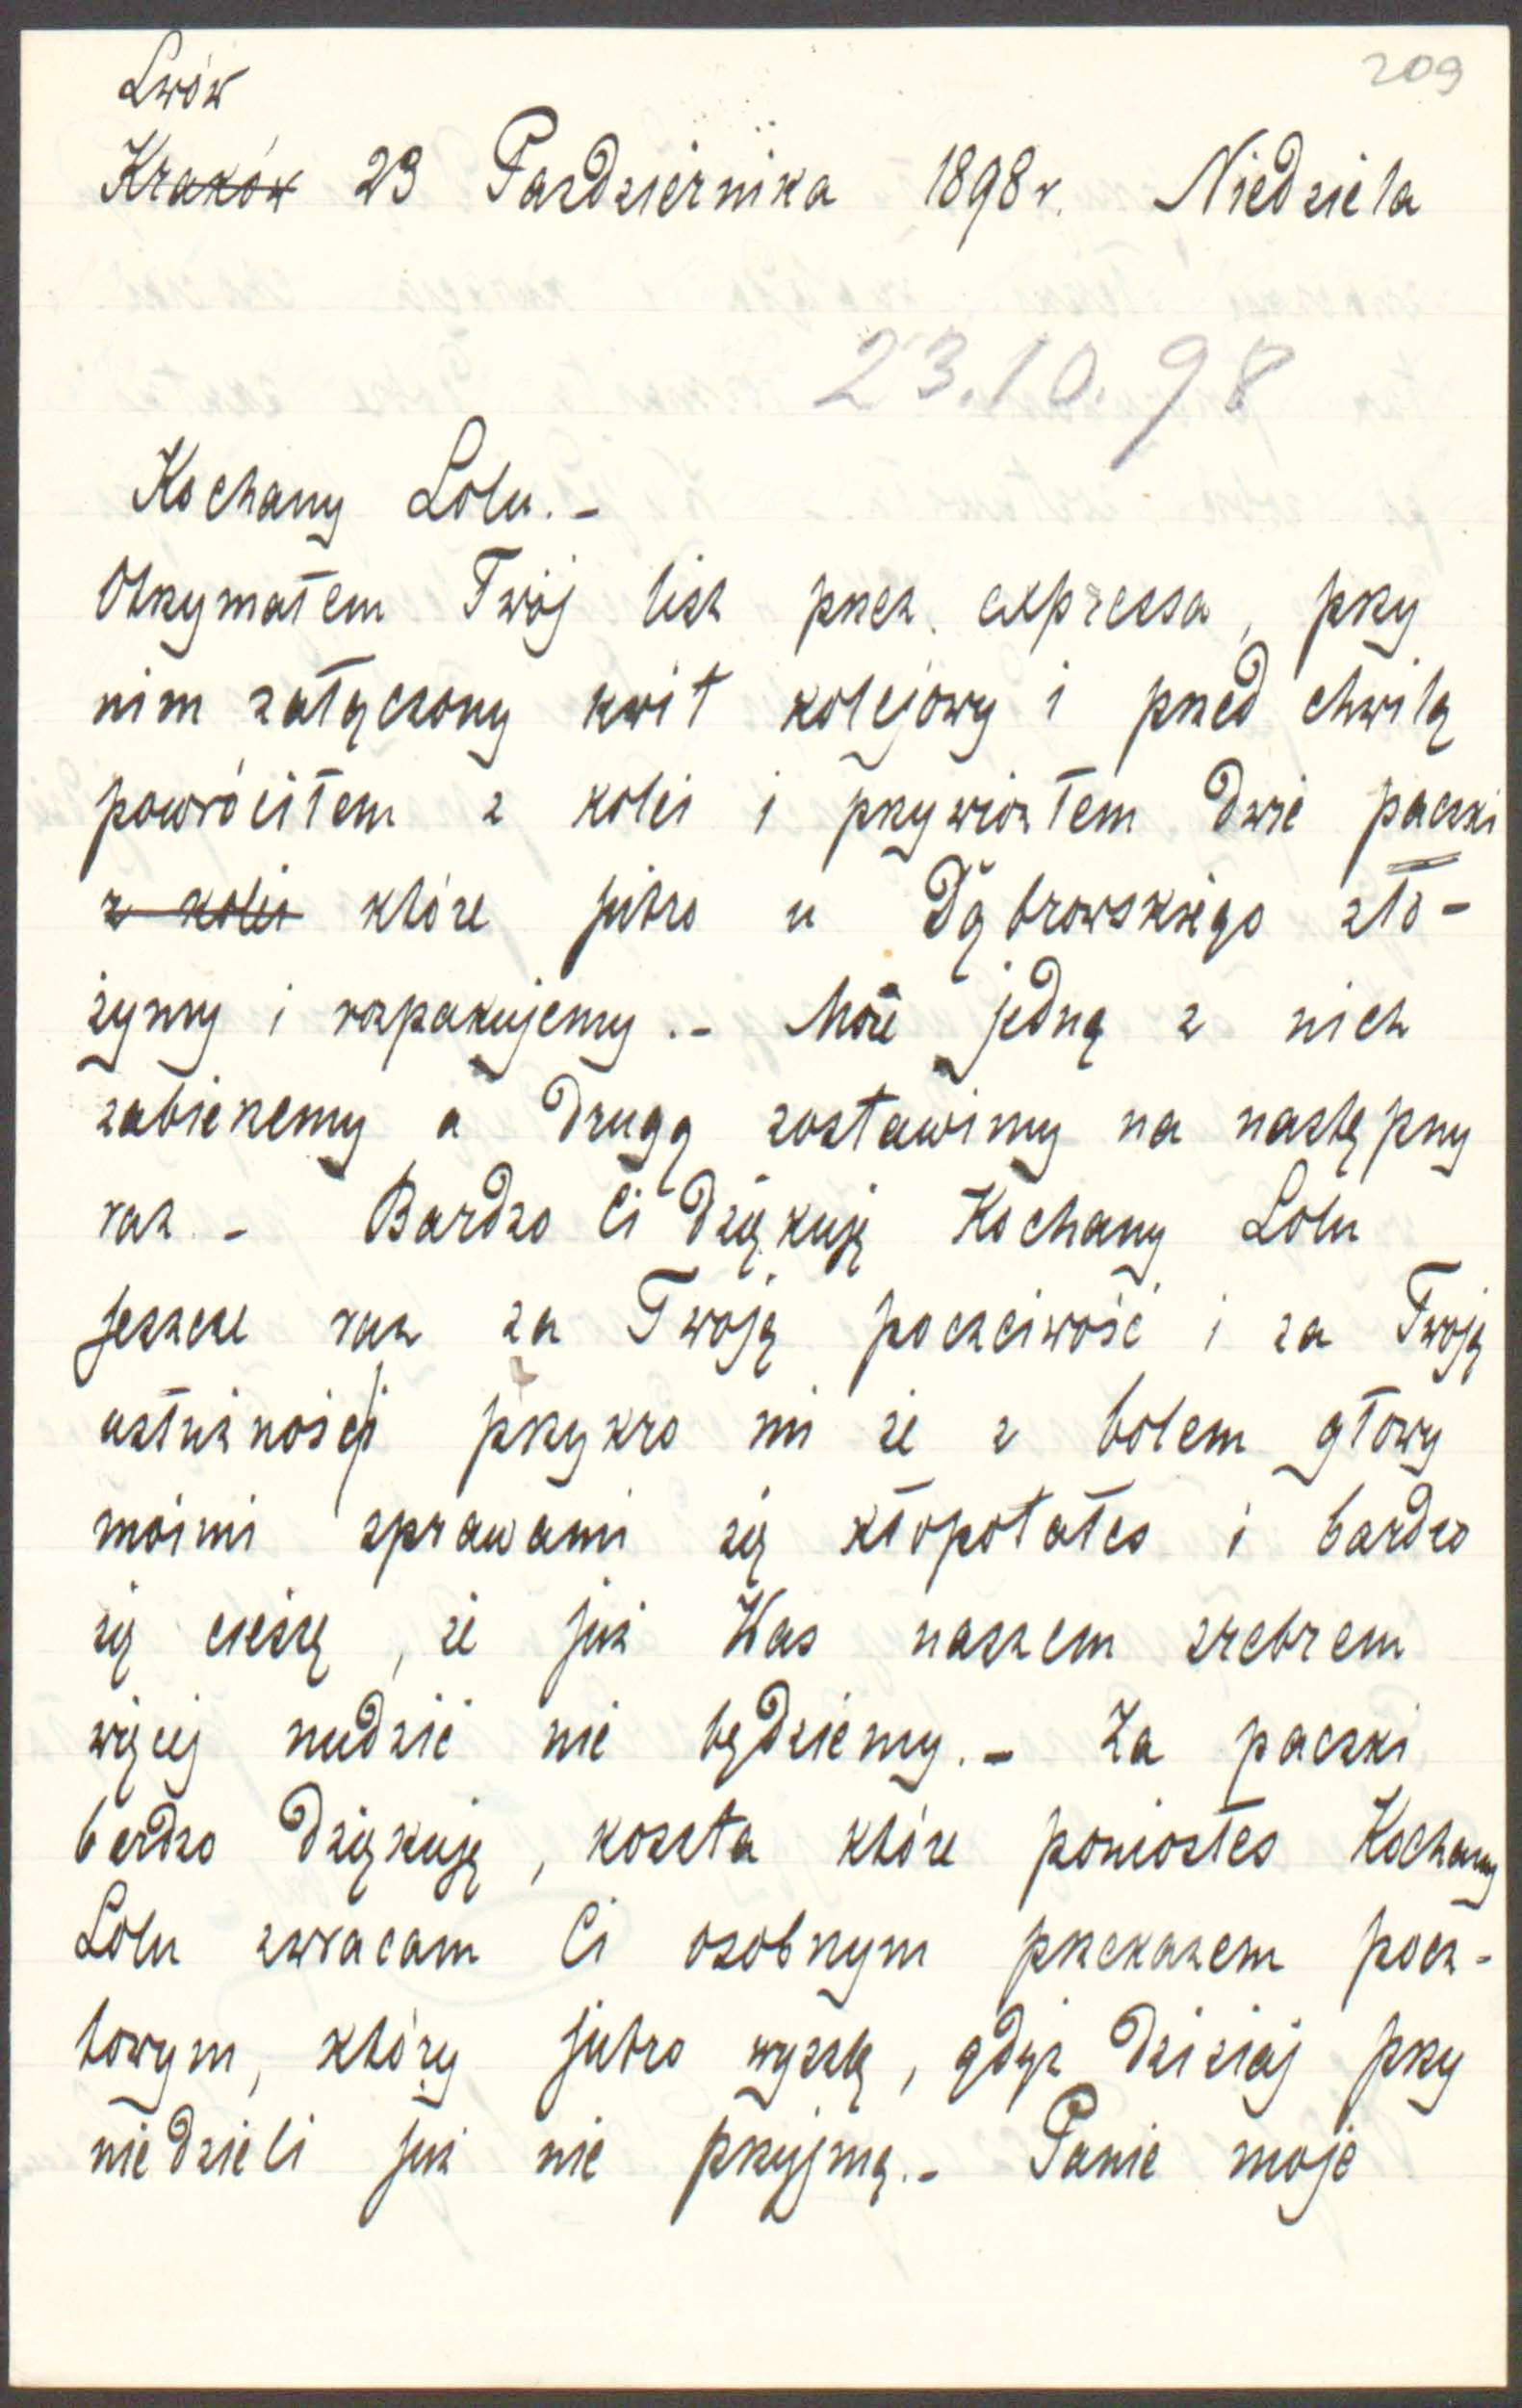 Lwów
209
Kraków 23 Pazdziernika 1898 r. Niedziela
23.10.98
Kochany Lolu. -
Otrzymałem Twój list przez expressa, przy
nim załączony kwit kolejowy i przed chwilą
powróciłem z kolei i przywiozłem dwie paczki
z kolei które jutro u Dąbrowskiego zło-
żymy i rozpakujemy. - Może jedną z nich
zabierzemy a drugą zostawimy na następny
raz. - Bardzo Ci dziękuję Kochany Lolu
jeszcze raz za Twoją poczciwość i za Twoją
usłużność przykro mi że z bolem głowy
moimi sprawami się kłopotałeś i bardzo
się cieszę, że już Was naszem srebrem
więcej nudzić nie będziemy. - Za paczki
bardzo dziękuję, koszta które poniosłeś Kochany
Lolu zwracam Ci osobnym przekazem pocz-
towym, który jutro wyszlę, gdyż dzisiaj przy
niedzieli już nie przyjmą. - Panie moje